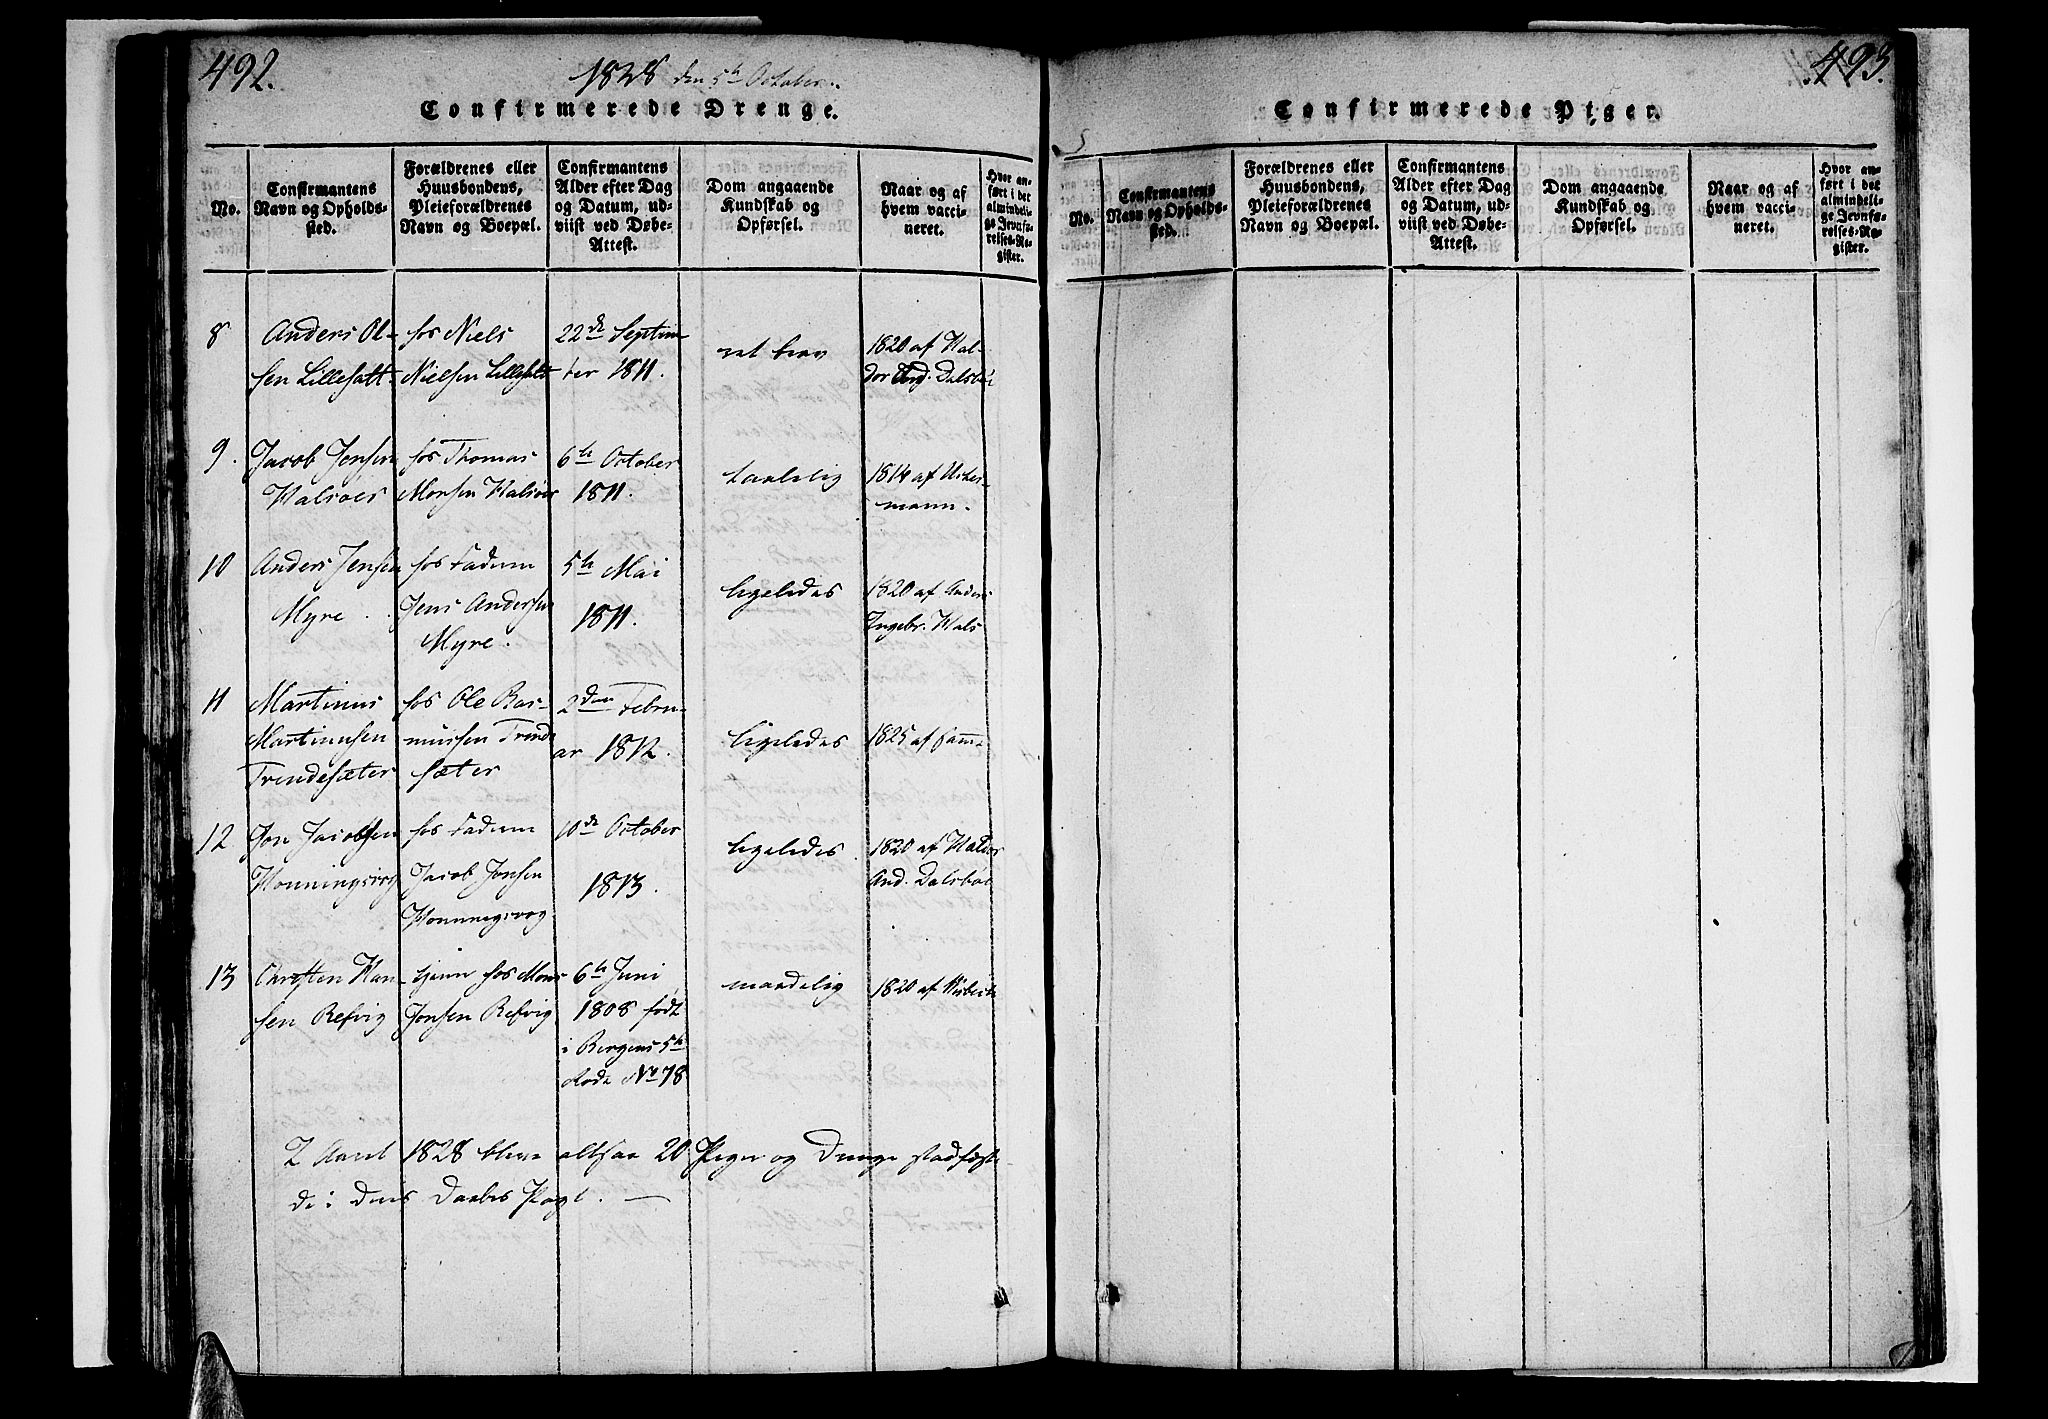 492.
1828 den 5te October.
Confirmerede Drenge.
No.
Confirmantens
Navn og Opholds-
sted.
Forældrenes eller
Huusbondens,
Pleieforældrenes
Navn og Boepæl.
Confirmantens
Alder efter Dag
og Datum, ud-
viist ved Døbe-
Attest.
Dom angaaende
Kundskab og
Opførsel.
Naar og af
hvem vacci-
neret.
Hvor an-
ført i det
almindeli-
ge Jevnfø-
relses-Re-
gister.
8
Anders Ol-
sen Lillesatt
hos Niels
Nielsen Lillesatt
22de Septem-
ber 1811.
ret brav
1820 af Hal-
dor And. Dalsbøe
9.
Jacob Jensen
Halsøer
hos Thomas
Monsen Halsøer
6te October
1811.
taalelig
1814 af Acker-
mann.
10
Anders Jensen
Myre.
hos Faderen
Jens Andersen
Myre.
5te Mai
1811.
ligeledes
1820 af Anders
Ingebr. Hals
11
Martinus
Martinusen
Trendesæter
hos Ole Ras-
mussen Trende
sæter
2den Febru-
ar 1812.
ligeledes
1825 af samme
12
Jon Jacobsen
Honningsvog
hos Faderen
Jacob Jonsen
Honningsvog
10de October
1813.
ligeledes
1820 af Haldor
And. Dalsbøe
13
Christen Han-
sen Refvig
tjener hos Mons
Jonsen Refvig
6te Juni
1808 født
i Bergens 5te
Rode No 78
maadelig
1820 af
I Aaret 1828 bleve altsaa 20 Piger og Drenge stadfæste-
de i deres Daabes Pagt.
493.
Confirmerede Piger.
No.
Confirmantens
Navn og Opholds-
sted.
Forældrenes eller
Huusbondens,
Pleieforældrenes
Navn og Boepæl.
Confirmantens
Alder efter Dag
og Datum, ud-
viist ved Døbe-
Attest.
Dom angaaende
Kundskab og
Opførsel.
Naar og af
hvem vacci-
neret.
Hvor an-
ført i det
almindeli-
ge Jevnfø-
relses-Re-
gister.